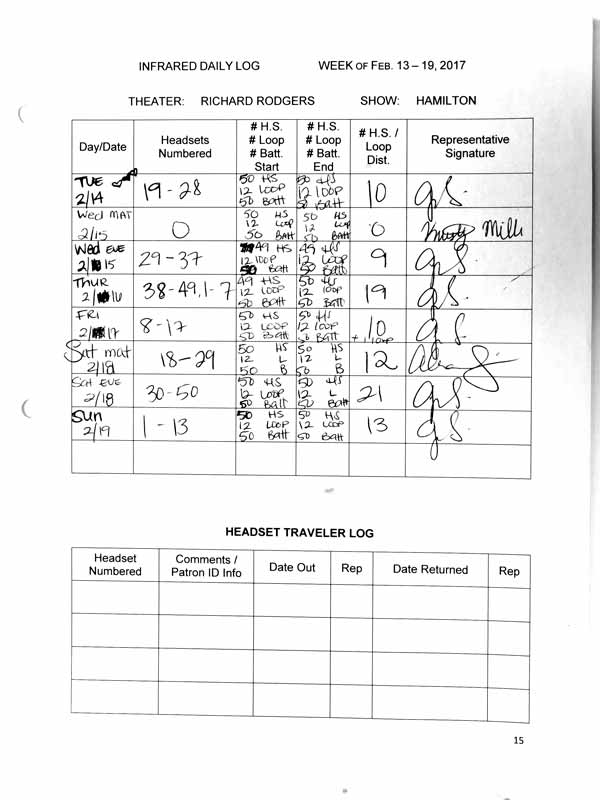 INFRARED DAILY LOG WEEK OF FEB. 13 – 19, 2017
THEATER: RICHARD RODGERS SHOW: HAMILTON
Day/Date
Headsets
Numbered
# H.S.
# Loop
# Batt.
Start
# H.S.
# Loop
# Batt.
End
# H.S. /
Loop
Dist.
Representative
Signature
TUE
2/14
19-28
50 HS
12 LOOP
50 Batt
50 HS
12 LOOP
50 Batt
10
Wed MAT
2/15
0
50 HS
12 Loop
50 BATT
50 HS
12 Loop
50 BATT
0
Mills
Wed EVE
2/15
29-37
49 HS
12 LOOP
50 Batt
49 HS
12 LOOP
50 Batt
9
THUR
2/16
38-49,1-7
49 HS
12 LOOP
50 Batt
50 HS
12 LOOP
50 Batt
19
FRI
2/17
8-17
50 HS
12 LOOP
50 BATT
50 HS
12 LOOP
50 BATT
10
+ 1 loop
Sat mat
2/18
18-29
50 HS
12 L
50 B
50 HS
12 L
50 B
12
Sat EVE
2/18
30-50
50 HS
12 LOOP
50 Batt
50 HS
12 L
50 Batt
21
Sun
2/19
1-13
50 HS
12 LOOP
50 Batt
50 HS
12 LOOP
50 Batt
13
HEADSET TRAVELER LOG
Headset
Numbered
Comments /
Patron ID Info
Date Out
Rep
Date Returned
Rep
15